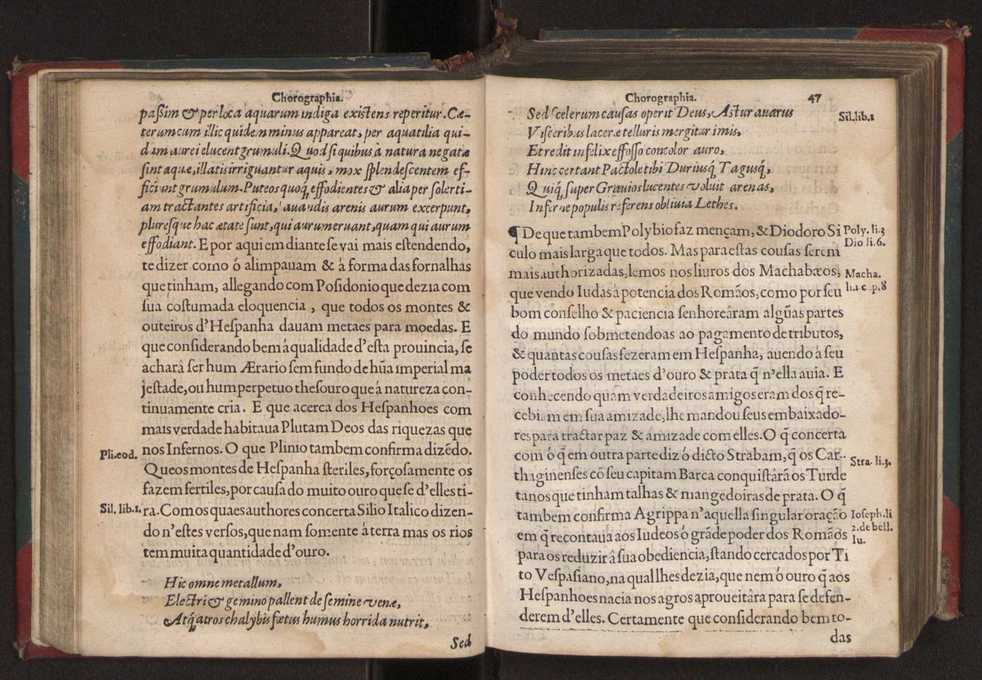 Chorographia.
paſsim & per loca aquarum indiga existens reperitur. Cæ-
terum cum illic quidem minus appareat, per aquatilia qui-
dam aurei elucent grumuli. Quod si quibus à natura negatæ
sint aquæ, illatis irriguantur aquis, mox splendescentem ef-
ficiunt grumulum. Puteos quoq, effodientes & alia per solerti-
am tractantes artificia, auandis arenis aurum excerpunt,
pluresque hac ætate sunt, qui aurum eruant, quam qui aurum
effodiant. E por aqui em diante se vai mais estendendo,
te dizer como ó alimpauam & à forma das fornalhas
que tinham, allegando com Posidonio que dezia com
sua costumada eloquencia, que todos os montes &
outeiros d'Hespanha dauam metaes para moedas. E
que considerando bem à qualidade d'esta prouincia, se
achará ser hum Ærario sem fundo de hũa imperial ma
jestade, ou hum perpetuo thesouro que à natureza con-
tinuamente cria. E que acerca dos Hespanhoes com
mais verdade habitaua Plutam Deos das riquezas que
Pli. eod. nos Infernos. O que Plinio tambem confirma dizẽdo.
Que os montes de Hespanha steriles, forçosamente os
fazem fertiles, por causa do muito ouro que se d'elles ti-
Sil. lib. 1. ra. Com os quaes authores concerta Silio Italico dizen-
do n'estes versos, que nam somente à terra mas os rios
tem muita quantidade d'ouro.
Hic omne metallum,
Electri & gemino pallent de semine venæ,
Atq, atros chalybis fœtus humus horrida nutrit,
Sed
Chorographia. 47
Sed scelerum causas operit Deus, Astur auarus Sil. lib. 1
Visceribus laceræ telluris mergitur imis,
Et redit infelix effosso concolor auro,
Hinc certant Pactole tibi Duriusq, Tagusq,
Quiq, super Grauios lucentes voluit arenas,
Infernæ populis referens obliuia Lethes.
¶ De que tambem Polybio faz mençam, & Diodoro Si Poly. li. 3
culo mais larga que todos. Mas para estas cousas serem Dio li. 6.
mais authorizadas, lemos nos liuros dos Machabæos, Macha.
que vendo Iudas à potencia dos Romãos, como por seu li. 1 c. p. 8
bom conselho & paciencia senhoreâram algũas partes
do mundo sobmetendoas ao pagamento de tributos,
& quantas cousas fezeram em Hespanha, auendo à seu
poder todos os metaes d'ouro & prata q̃ n'ella auia. E
conhecendo quàm verdadeiros amigos eram dos q̃ re-
cebiam em sua amizade, lhe mandou seus embaixado-
res para tractar paz & amizade com elles. O q̃ concerta
com ò q̃ em outra parte diz ò dicto Strabam, q̃ os Car- Stra. li. 3.
thaginenses cõ seu capitam Barca conquistârã os Turde
tanos que tinham talhas & mangedoiras de prata. O q̃
tambem confirma Agrippa n'aquella singular oração Ioseph. li
em q̃ recontaua aos Iudeos ò grãde poder dos Romãos 2. de bell.
para os reduzir â sua obediencia, stando cercados por Ti Iu.
to Vespasiano, na qual lhes dezia, que nem ò ouro q̃ aòs
Hespanhoes nacia nos agros aproueitâra para se defen-
derem d'elles. Certamente que considerando bem to-
das